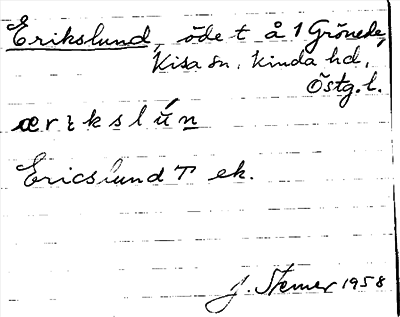 Erikslund, öde t å 1 Grönede,
Kisa sn, Kinda hd,
Östg.l.
ærɩkslún
Ericslund T ek.
J. Sterner 1958